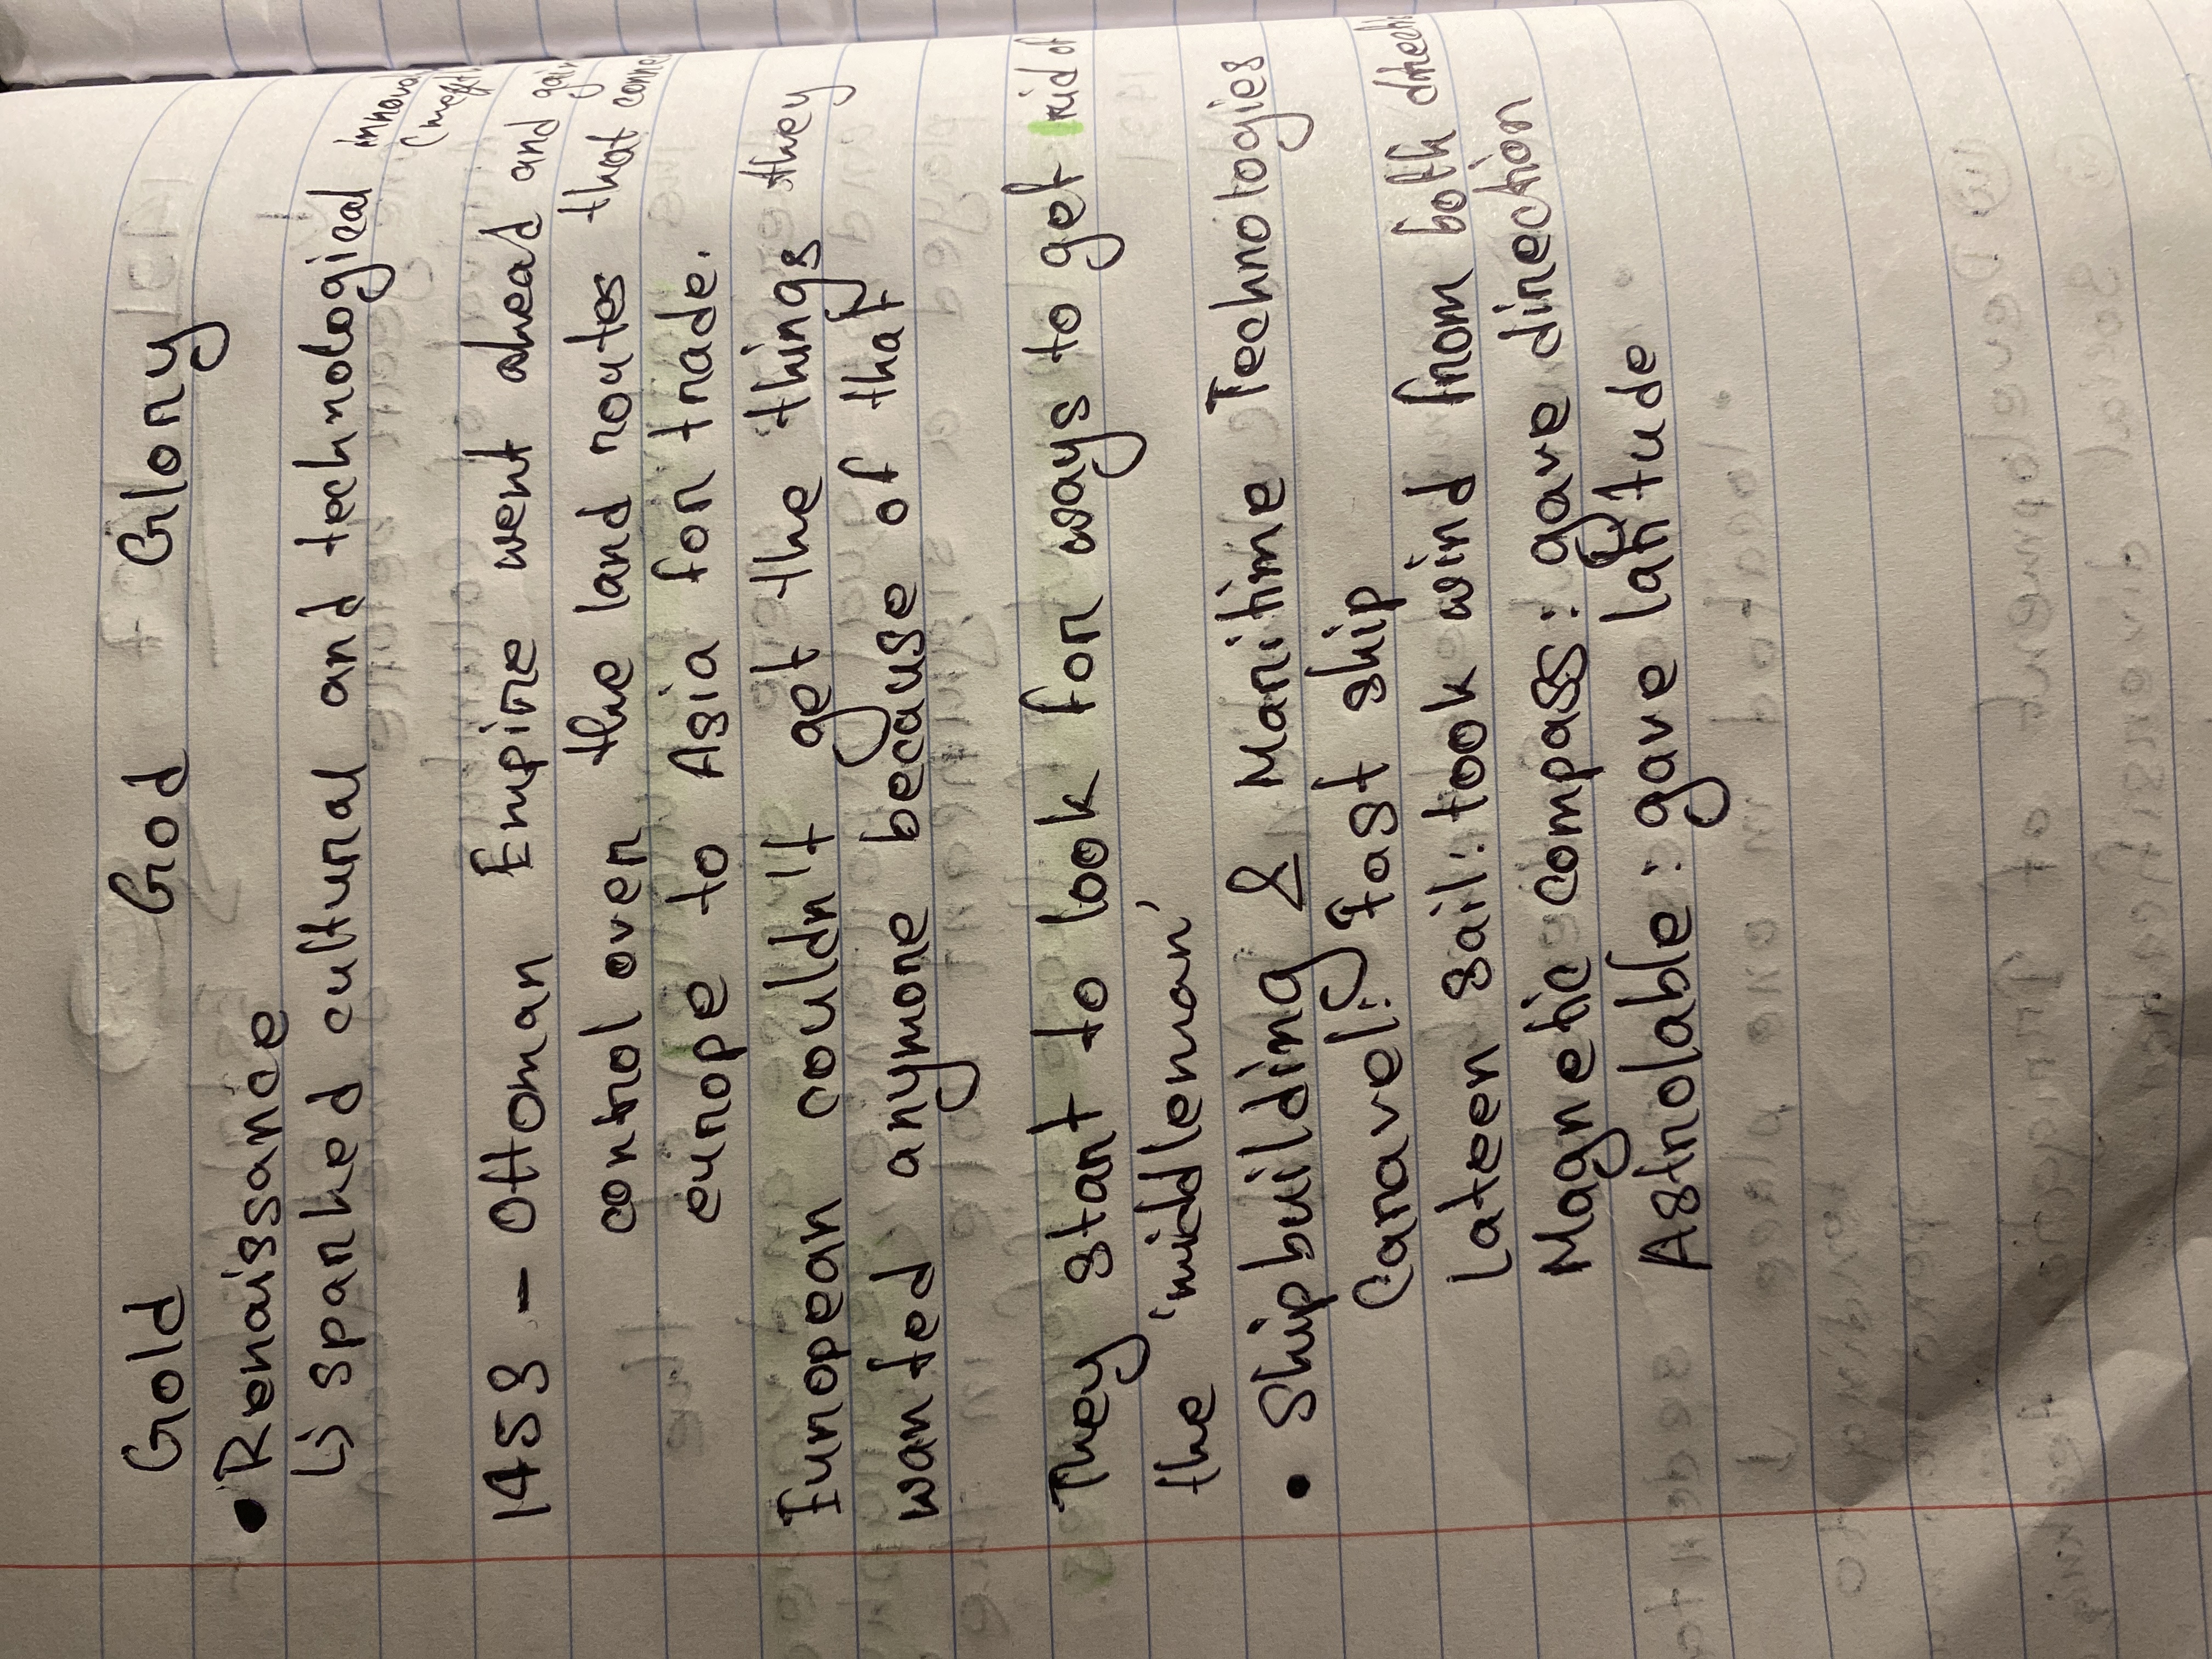 Gold God Glory
• Renaissance
↳ sparked cultural and technological
1453 - Ottoman Empire went ahead and
control over the land routes that
europe to Asia for trade.
European couldn't get the things they
wanted anymore because of that
They start to look for ways to get rid of
the 'middleman'
• Shipbuilding & Maritime Technologies
Caravel: fast ship
Lateen sail: took wind from both
Magnetic compass: gave direction
Astrolable: gave latitude